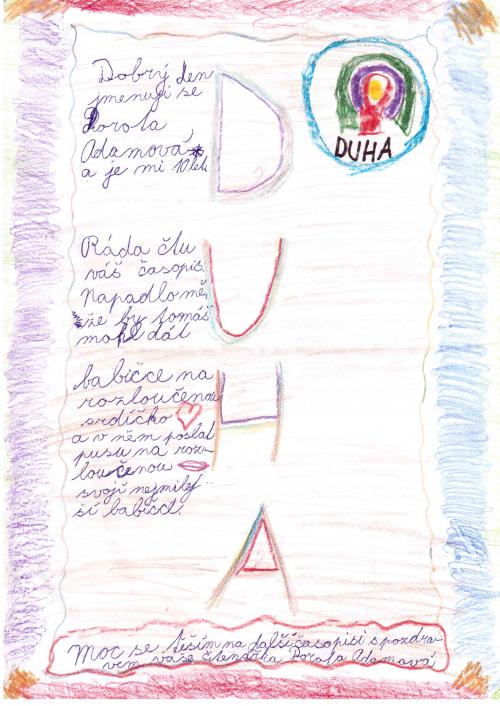 Dobrý den
jmenuji se
Dorota
Adamová,
a je mi 10 let
Ráda čtu
váš časopis.
Napadlo mě,
že by tomáš
mohl dát
babičce na
rozloučenou
srdíčko
a v něm poslat
pusu na roz-
loučenou
svojí nejmilej-
ší babičce.
D
U
H
A
DUHA
Moc se těším na další časopis s pozdra-
vem vaše čtenářka Dorota Adamová